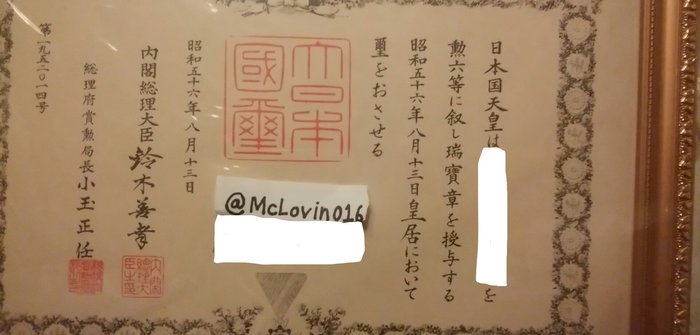 日本国天皇は
を
勲六等に叙し瑞寶章を授与する
昭和五十六年八月十三日皇居において
璽をおさせる
大日本
國璽
昭和五十六年八月十三日
内閣総理大臣 鈴木善幸
内閣
総理大
臣之印
総理府賞勲局長 小玉正任
第一九五二〇一四号
@McLovin016